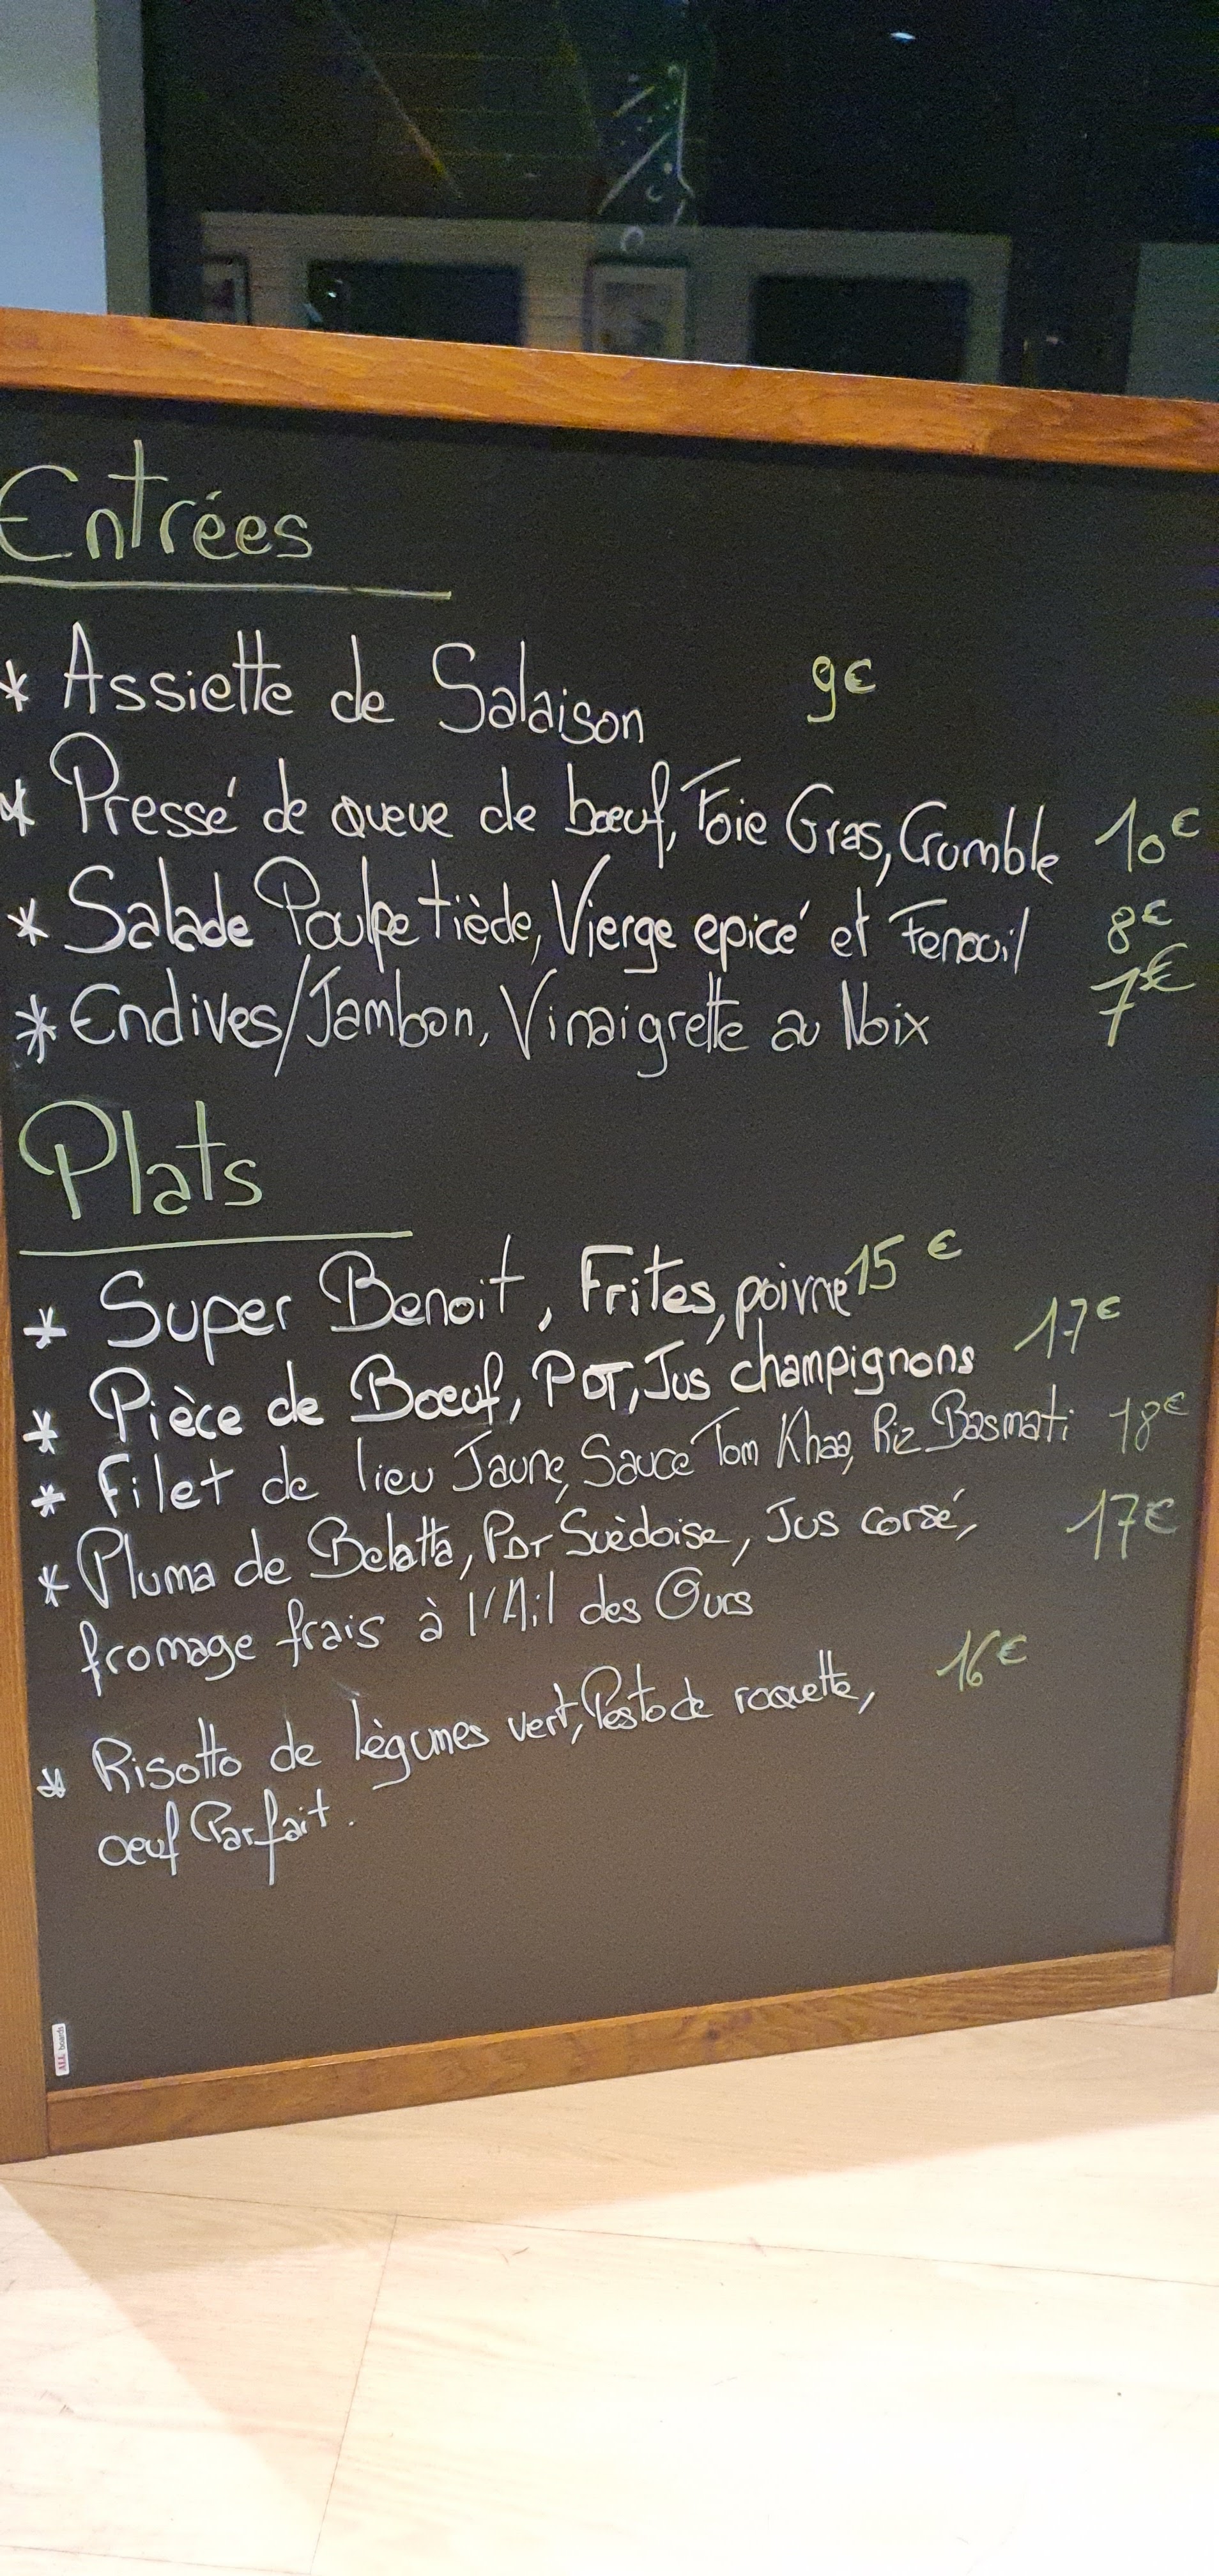 Entrées
* Assiette de Salaison 9€
* Pressé de queue de bœuf, Foie Gras, Crumble 10€
* Salade Poulpe tiède, Vierge epicé et Fenouil 8€
* Endives/Jambon, Vinaigrette au Noix 7€
Plats
* Super Benoit, Frites, poivre 15€
* Pièce de Boeuf, PDT, Jus champignons 17€
* Filet de lieu Jaune, Sauce Tom Khaa, Riz Basmati 18€
* Pluma de Belatta, PDT Suèdoise, Jus corsé, 17€
fromage frais à l'Ail des Ours
* Risotto de lègumes vert, Pesto de roquette, 16€
oeuf Parfait.
ALL boards